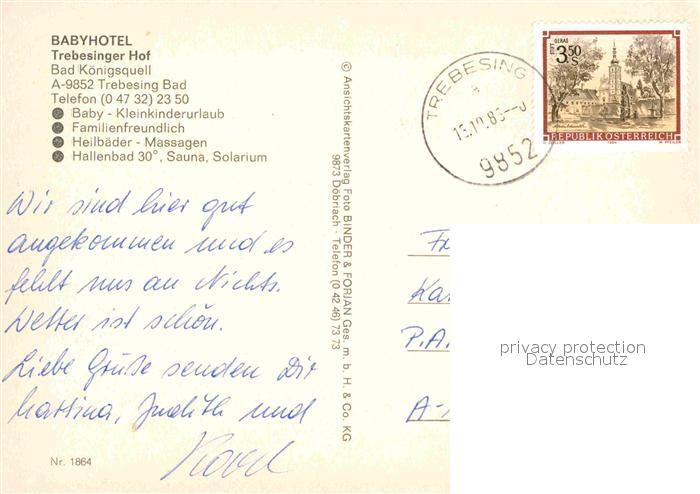 BABYHOTEL
Trebesinger Hof
Bad Königsquell
A-9852 Trebesing Bad
Telefon (0 47 32) 23 50
Baby - Kleinkinderurlaub
Familienfreundlich
Heilbäder - Massagen
Hallenbad 30°, Sauna, Solarium
Wir sind hier gut
angekommen und es
fehlt uns an Nichts.
Wetter ist schön.
Liebe Grüße senden Dir
Martina, Judith und
Karl
Nr. 1864
© Ansichtskartenverlag Foto BINDER & FORJAN Ges. m. b. H. & Co. KG
9873 Döbriach - Telefon (0 42 46) 73 73
TREBESING
9852
STIFT GERAS
3.50 S
REPUBLIK ÖSTERREICH
1984 W. PFEILER
P.A.
A-
privacy protection
Datenschutz